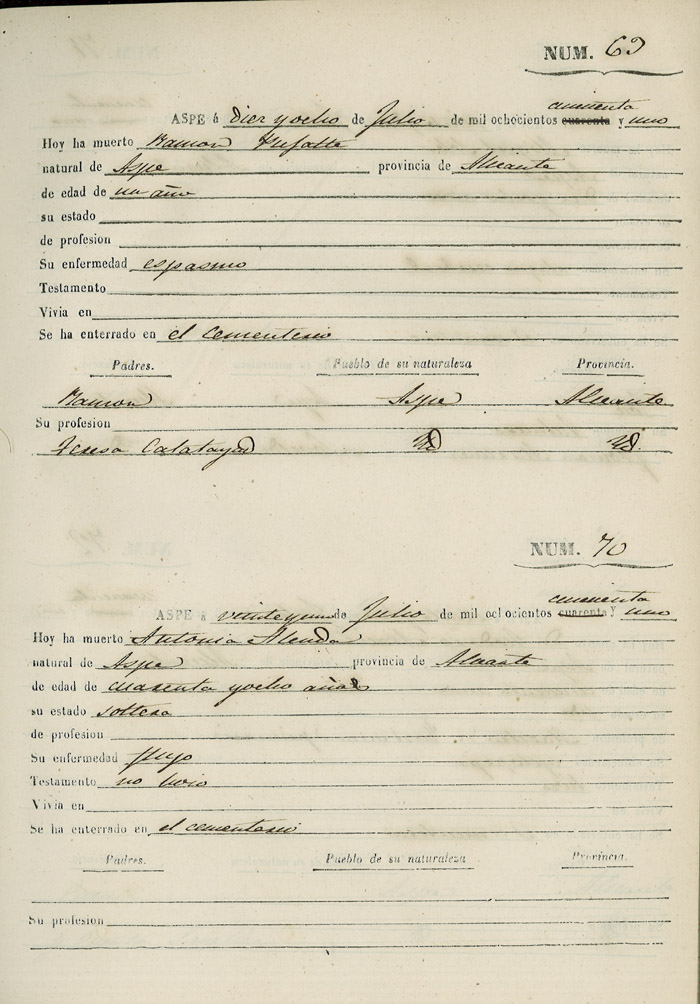 NUM. 69
cincuenta
ASPE á diez y ocho de Julio de mil ochocientos cuarenta y uno
Hoy ha muerto Ramon
natural de Aspe provincia de Alicante
de edad de un año
su estado
de profesion
Su enfermedad espasmo
Testamento
Vivia en
Se ha enterrado en el cementerio
Padres. Pueblo de su naturaleza Provincia.
Ramon Aspe Alicante
Su profesion
Teresa Calatayud Id Id.
NUM. 70
cincuenta
ASPE á veinte y uno de Julio de mil ochocientos cuarenta y uno
Hoy ha muerto Antonia Alenda
natural de Aspe provincia de Alicante
de edad de cuarenta y ocho años
su estado soltera
de profesion
Su enfermedad flujo
Testamento no hizo
Vivia en
Se ha enterrado en el cementerio
Padres. Pueblo de su naturaleza Provincia.
Su profesion